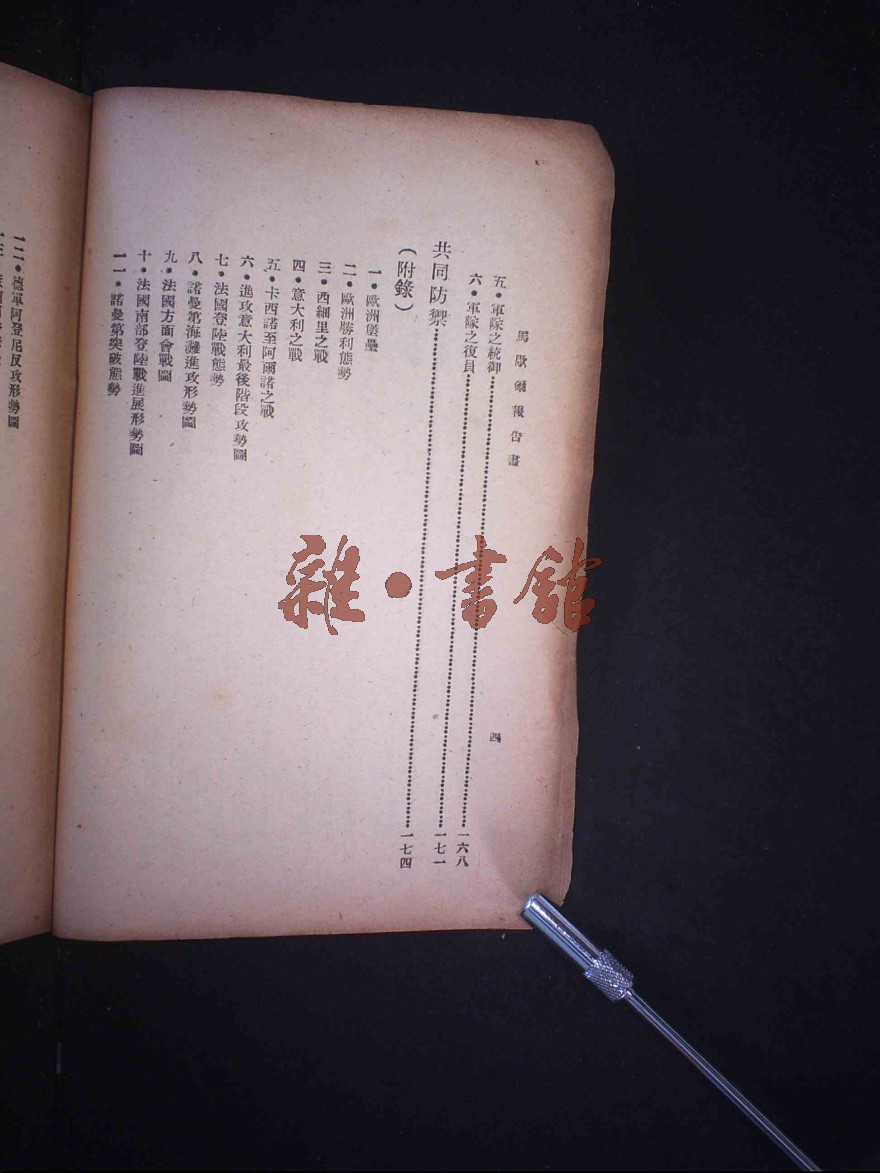 馬歇爾報告書
四
五•軍隊之統御……一六八
六•軍隊之復員……一七一
共同防禦……一七四
(附錄)
一•歐洲堡壘
二•歐洲勝利態勢
三•西細里之戰
四•意大利之戰
五•卡西諾至阿爾諾之戰
六•進攻意大利最後階段攻勢圖
七•法國登陸戰態勢
八•諾曼第海灘進攻形勢圖
九•法國方面會戰圖
十•法國南部登陸戰進展形勢圖
一一•諾曼第突破態勢
一二•德軍阿登尼反攻形勢圖
雜•書館